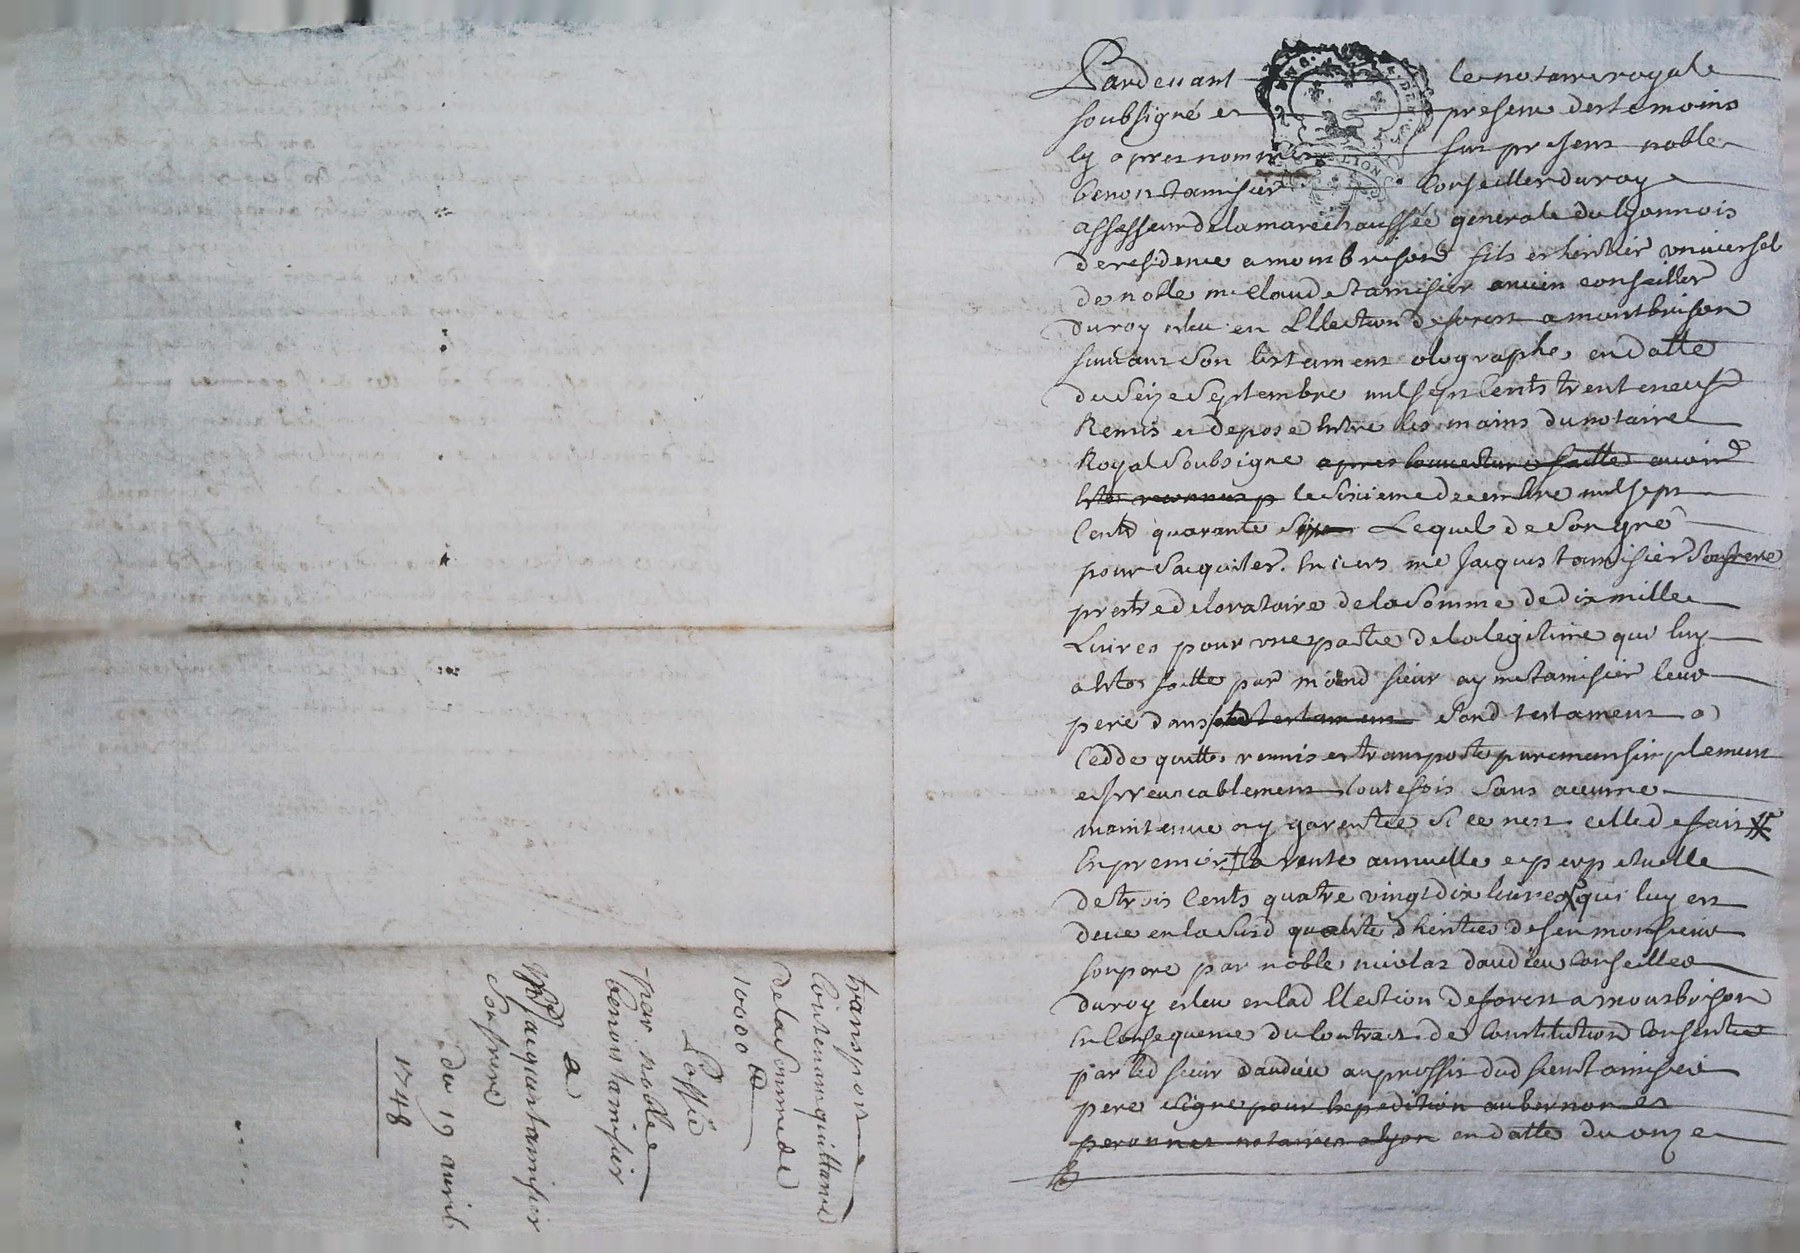 transport
Contenant quittance
de la somme de
10000 ₶
Passé
par noble
benoit tamisier
a
Me Jacques tamisier
son frere
du 19 avril
1748
Pardevant le notaire royale
soubsigné et presence des temoins
cy apres nommes fut present noble
benoit tamisier Conseiller du roy
assesseur de la marechaussée generale du lyonnois
de residence a montbrison fils et heritier universel
de noble me Claude tamisier ancien conseiller
du roy eslu en Lelection de forest a montbrison
suivant son testament olographe en datte
du seize septembre mil sept cents trente neuf
Remis et deposé entre les mains du notaire
Royal soubsigné apres louverture faitte
le sixieme decembre mil sept
Cents quarante Lequel de son gré
pour sacquiter envers me Jacques tamisier son frere
prestre de loratoire de la somme de dix mille
Livres pour une partie de la legitime qui luy
a este faitte par mond sieur tamisier leur
pere dans led testament sond testament a
Cedde quitte remis et transporté purement simplement
et irrevocablement toutefois sans aucune
maintenue ny garentie si ce nest celle de fait
En premier la rente annuelle et perpetuelle
de trois Cents quatre vingt dix livres qui luy est
deue en la susd qualité dheritier de feu monsieur
son pere par noble nicolas daudieu Conseiller
du roy eslu en lad Election de forest a montbrison
En Consequence du Contract de Constitution Consentie
par led sieur daudieu au proffit dud sieur tamisier
pere signe pour expedition aubernon et
peronnet notaires a lyon en datte du onze